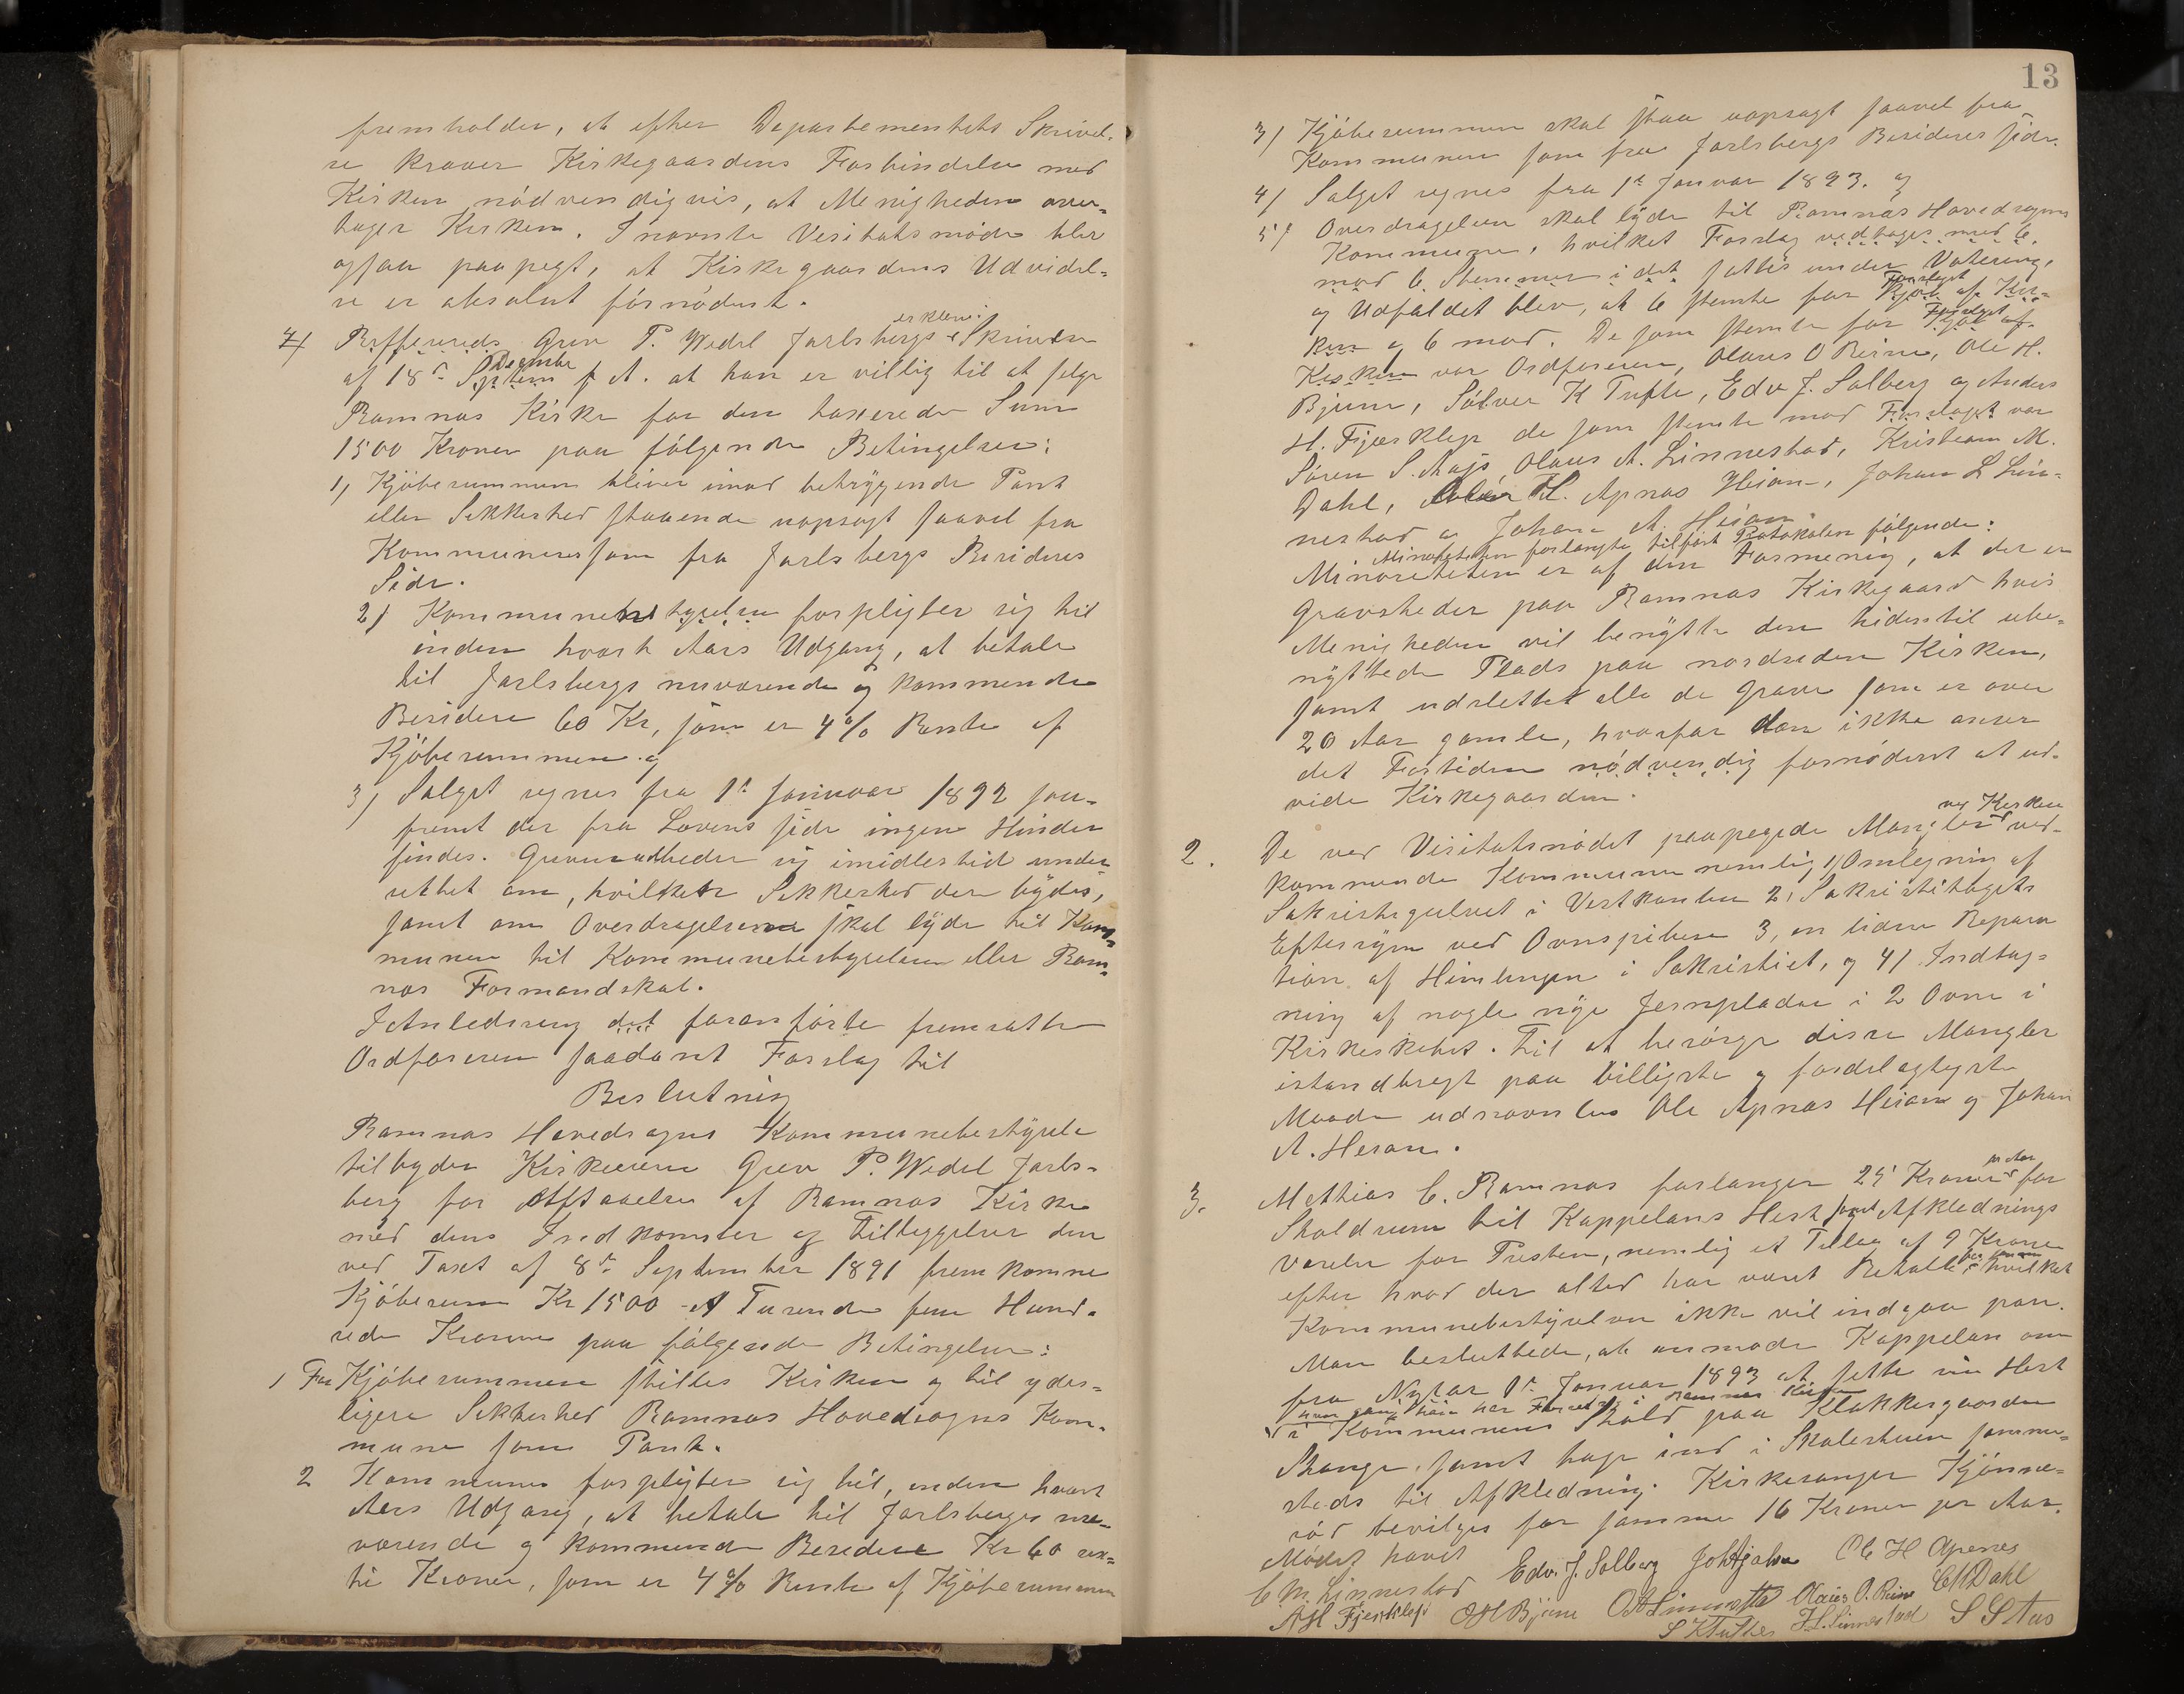 fremholder, at efter Departementets Skrivel-
se kræver Kirkegaardens Forbindelse med
Kirken nödvendigvis, at Menigheden over-
tager Kirken. I nævnte Visitatsmöde blev
ogsaa paapegt, at Kirkegaardens Udvidel-
se er absolut fornödent.
erklæri.
Refferereds Grev P. Wedel Jarlsbergs Skrivelse
Decembr
af 18de Septem f A. at han er villig til at selge
Ramnæs Kirke for den taxerede Sum
1500 Kroner paa fölgende Betingelser:
1) Kjöbesummen bliver imod betryggende Pant
eller Sikkerhed staaende uopsagt saavel fra
Kommunens som fra Jarlsbergs Besideres
Side.
2) Kommunebestyrelsen forpligter sig til
inden hvert Aars Udgang, at betale
til Jarlsbergs nuværende og kommende
Besidere 60 Kr, som er 4% Rente af
Kjöbesummen. og
3) Salget regnes fra 1ste Januar 1892 saa-
fremt der fra Lovens side ingen Hinder
findes. Greven udbeder sig imidlertid under-
rettet om, hvilken Sikkerhed der bydes,
samt om Overdragelsen skal lyde til Kom-
munen til Kommunebestyrelsen eller Ram-
næs Formandskab.
I Anledning det foranförte fremsatte
Ordföreren saadant Forslag til
Beslutning
Ramnæs Hovedsogns Kommunebestyrelse
tilbyder Kirkeeieren Grev P. Wedel Jarls-
berg for Afstaaelse af Ramnæs Kirke
med dens Indkomster og Tilliggelser den
ved Taxt af 8de September 1891 fremkomne
Kjöbesum Kr 1500 - Et Tusende fem Hund-
rede Kroner paa fölgende Betingelser:
1 For Kjöbesummen stilles Kirken og til yder-
ligere Sikkerhed Ramnæs Hovedsogns Kom-
mune som Pant.
2 Kommunen forpligter sig til, inden hvert
Aars Udgang, at betale til Jarlsbergs nu-
værende og kommende Besidere Kr 60 sex-
ti Kroner, som er 4% Rente af Kjöbesummen
13
3) Kjöbesummen skal staa uopsagt saavel fra
Kommunen som fra Jarlsbergs Besideres side.
4) Salget regnes fra 1ste Januar 1893. og
5) Overdragelsen skal lyde til Ramnæs Hovedsogns
Kommune, hvilket Forslag vedtages med 6
mod 6 Stemmer i det sattes under Votering,
Forslaget
og Udfaldet blev, at 6 stemte for Kjöb af Kir-
Forslaget
ken og 6 mod. De som stemte for Kjöb af
Kirken var Ordföreren, Olaves O Reine, Ole H.
Bjune, Sölver K Tufte, Edv J. Solberg og Anders
H. Fjerskløp de som stemte mod Forslaget var
Sören S. Aas, Olaus A. Linnestad, Kristian M.
Dahl, H. Apnæs Heian, Johan L Lin-
nestad og Johan A. Heian.
Minoriteten forlangte tilfört Protokolen fölgende:
Minoriteten er af den Formening, at der er
Gravsteder paa Ramnæs Kirkegaard hvis
Menigheden vil benytte den hidentil ube-
nyttede Plads paa nordsiden Kirken,
samt udslettet alle de Grave som er over
20 Aar gamle, hvorfor den ikke anser
det Fortiden nödvendig fornödent at ud-
vide Kirkegaarden.
ved Kirken
2. De ved Visitatsmödet paapegede Mangler ved-
kommende Kommunen nemlig 1) Omlegning af
Sakristigulvet i Vestkanten 2, Sakristitagets
Eftersyn ved Ovnspiben 3, en liden Repara
tion af Himlingen i Sakristiet, og 4) Indtag-
ning af nogle nye Jernplader i 2 Ovne i
Kirkeskibet. Til at besörge disse Mangler
istandbragt paa billigste og fordelagtigste
Maade udnævntes Ole Apnæs Heian og Johan
A. Heian.
pr Aar
3. Mathias C. Ramnæs forlanger 25 Kroner for
Staldrum til Kappelans Hest samt Afklednings
værelse for Presten, nemlig et Tillæg af 9 Kroner
efter hvad der altid har været Betalt hvilket
Kommunebestyrelsen ikke vil indgaa paa.
Man besluttede, at anmode Kappelan om
fra Nytaar 1ste Januar 1893 at sette sin Hest
hver gang han har Forretning i Ramnæs Kirke
i Kommunens Stald paa Klokkergaarden
Skange, samt tage ind i Skolestuen samme-
steds til Afkledning. Kirkesanger Kjönne-
röd bevilges for samme 16 Kroner pr Aar.
Mödet hævet
Edv. J. Solberg Joh Aj Ole H Apenes
C. M. Linnestad
A H Fjerskløp O H Bjune O A Linnestad Olaves O. Reine C M Dahl
S K Tufte J. L. Linnestad S S Aas